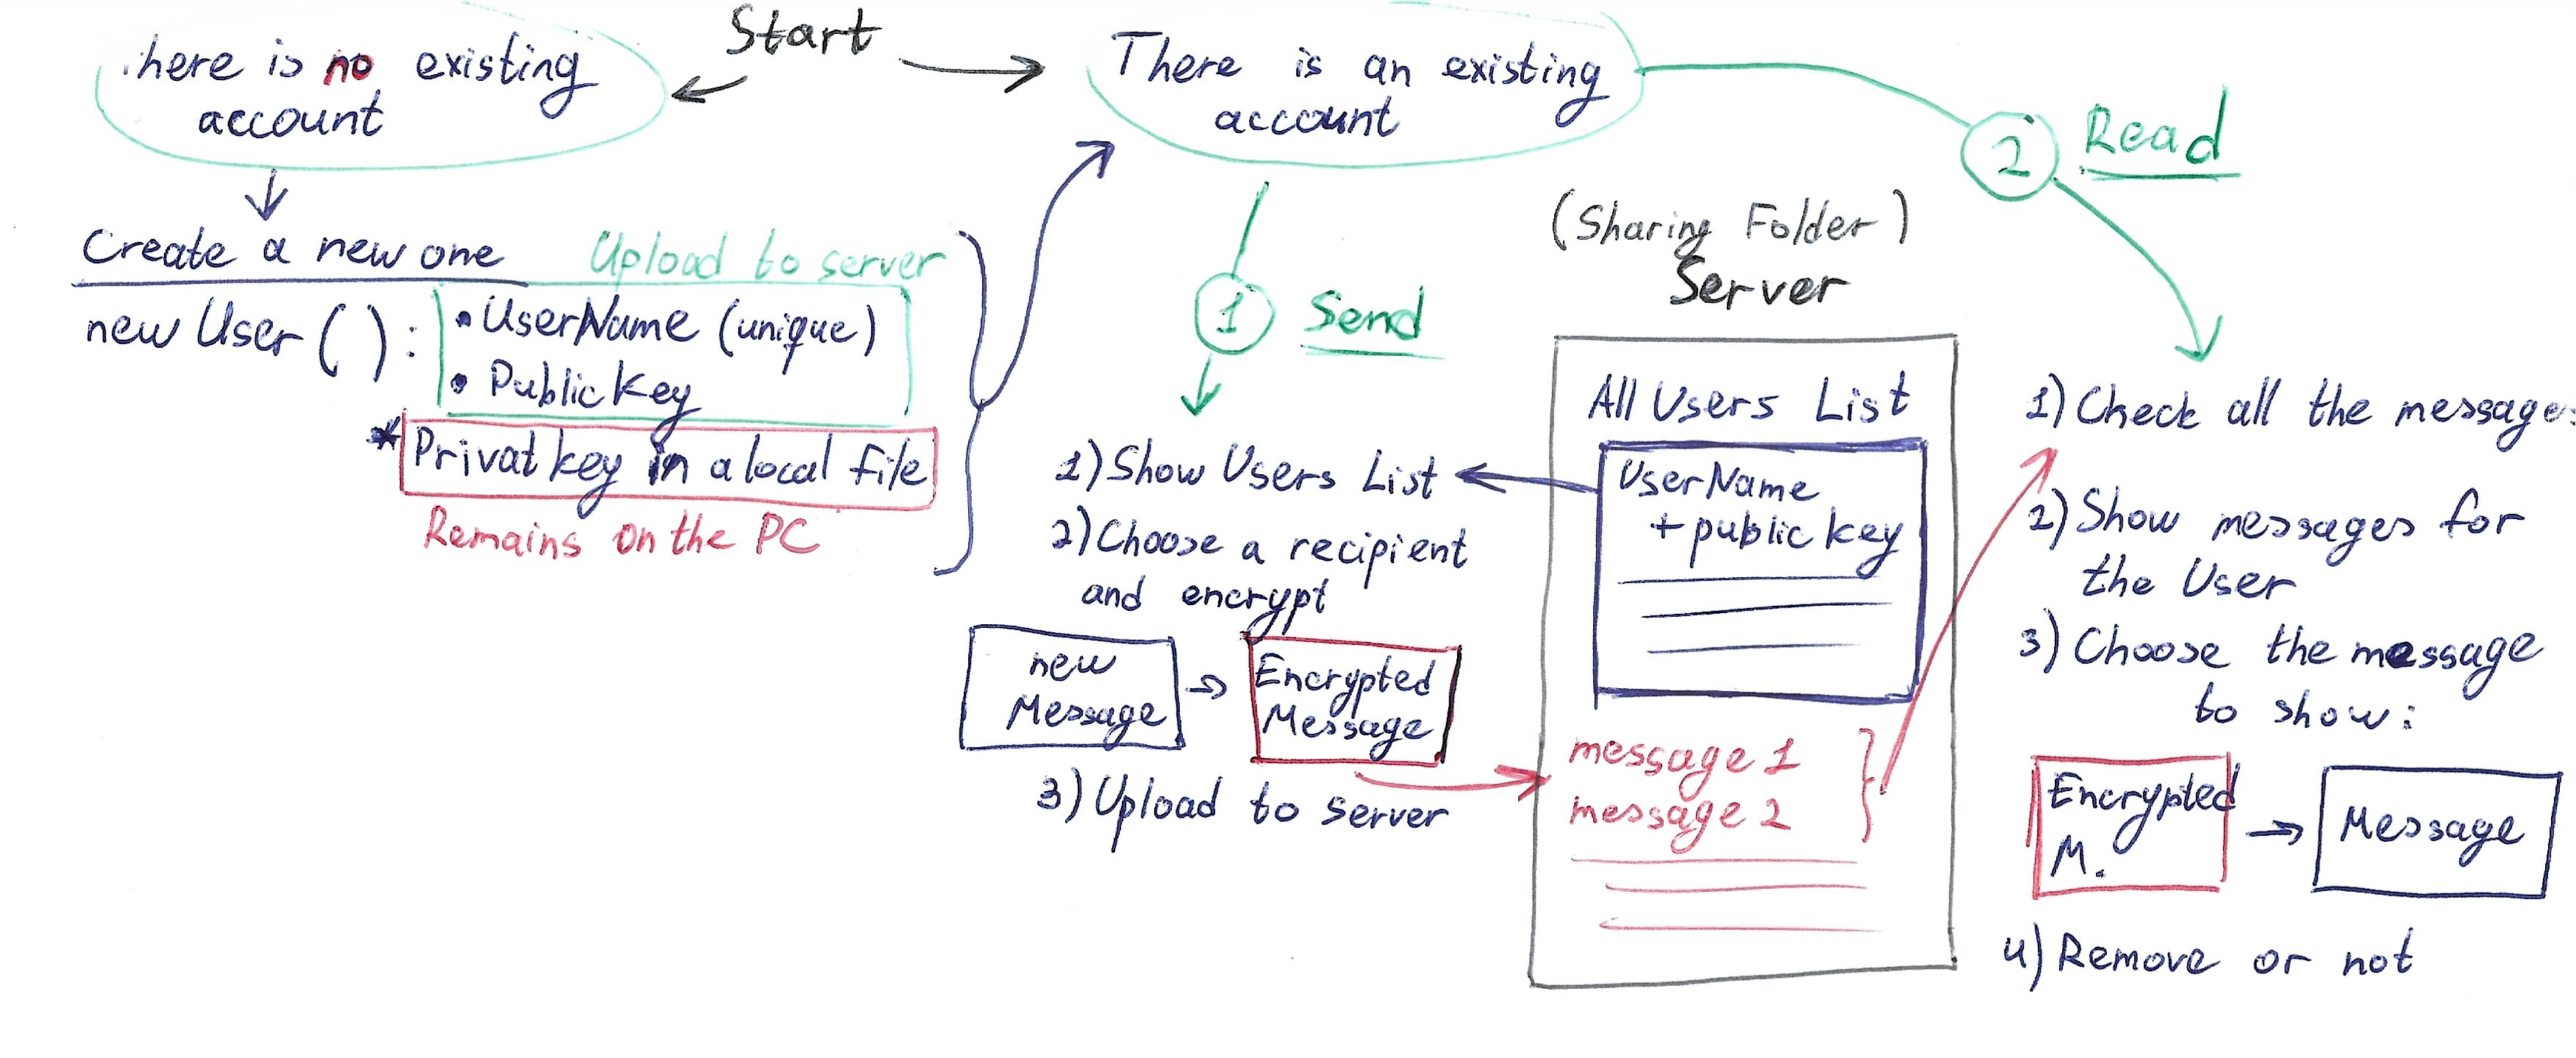 Start
here is no existing
account
Create a new one
Upload to server
new User ( ) :
• UserName (unique)
• Public Key
* Privat key in a local file
Remains on the PC
There is an existing
account
1 Send
1) Show Users List
2) Choose a recipient
and encrypt
new
Message
Encrypted
Message
3) Upload to server
(Sharing Folder)
Server
All Users List
UserName
+ public key
message 1
message 2
2 Read
1) Check all the messages
2) Show messages for
the User
3) Choose the message
to show:
Encrypted
M.
Message
4) Remove or not